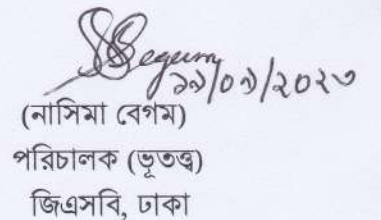 Begum
১৯/০৯/২০২৩
(নাসিমা বেগম)
পরিচালক (ভূতত্ত্ব)
জিএসবি, ঢাকা